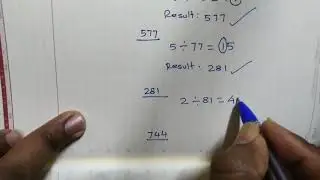 Result: 577 ✓
577
5 ÷ 77 = 15
Result: 281 ✓
281
2 ÷ 81 = 4
744